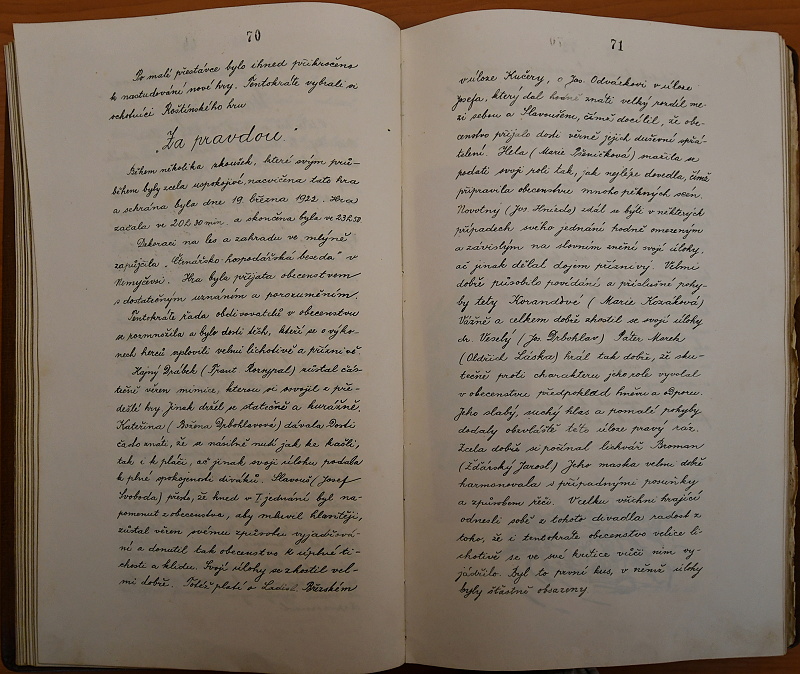 70
Po malé přestávce bylo ihned přikročeno
k nastudování nové hry. Tentokráte vybrali si
ochotníci Roštínského hru
"Za pravdou."
Během několika zkoušek, které svým prů-
během byly zcela uspokojivé, nacvičena tato hra
a sehrána byla dne 19 března 1922. Hra
začala ve 20 h. 30 min. a skončena byla ve 23 h. 50
Dekoraci na les a zahradu ve mlýně
zapůjčila "Čtenářsko-hospodářská beseda" v
Nemyčevsi. Hra byla přijata obecenstvem
s dostatečným uznáním a porozuměním.
Tentokráte řada obdivovatelů v obecenstvu
se rozmnožila a bylo dosti těch, kteří se o výko-
nech herců vyslovili velmi lichotivě a příznivě.
Hajný Drábek (Frant. Rozsypal) zůstal čás-
tečně věren mimice, kterou si osvojil z pře-
dešlé hry. Jinak držel se statečně a kurážně.
Kateřina (Božena Drbohlavová) dávala dosti
často znáti, že se násilně nutí jak ke kašli,
tak i k pláči, ač jinak svoji úlohu podala
k plné spokojenosti diváků. Slavouš (Josef
Svoboda) přesto, že hned v I jednání byl na-
pomenut z obecenstva, aby mluvil hlasitěji,
zůstal věren svému způsobu vyjadřová-
ní a donutil tak obecenstvo k úplné ti-
chosti a klidu. Svojí úlohy se zhostil vel-
mi dobře. Totéž platí o Ladisl. Břízském
71
v úloze Kučery, o Jos. Odvárkovi v úloze
Josefa, který dal hodně znáti velký rozdíl me-
zi sebou a Slavoušem, čímž docílil, že obe-
censtvo přijalo dosti věrně jejich duševní spřá-
telení. Hela (Marie Pšeničková) snažila se
podati svoji roli tak, jak nejlépe dovedla, čímž
připravila obecenstvu mnoho pěkných scén.
Novotný (Jos. Hnízdo) zdál se býti v některých
případech svého jednání hodně omezeným
a závislým na slovním znění svojí úlohy,
ač jinak dělal dojem příznivý. Velmi
dobře působilo povídání a příslušné pohy-
by tety Korandové (Marie Kozáková)
Vážně a celkem dobře zhostil se svojí úlohy
dr. Veselý (Jos. Drbohlav) Páter Morch
(Oldřich Láska) hrál tak dobře, že sku-
tečně proti charakteru jeho role vyvolal
v obecenstvu předpohled hněvu a odporu.
Jeho slabý, suchý hlas a pomalé pohyby
dodaly obzvláště této úloze pravý ráz.
Zcela dobře si počínal lichvář Broman
(Žďárský Jarosl.) Jeho maska velmi dobře
harmonovala s případnými posuňky
a způsobem řeči. V celku všichni hrající
odnesli sobě z tohoto divadla radost z
toho, že i tentokráte obecenstvo velice li-
chotivě se ve své kritice vůči nim vy-
jádřilo. Byl to první kus, v němž úlohy
byly šťastně obsazeny